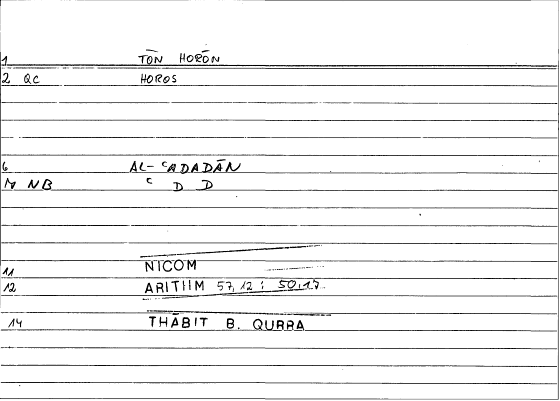 1 TŌN HORŌN
2 QC HOROS
6 AL-ʿADADĀN
NB ʿ D D
11 NICOM
12 ARITHM 57,12 : 50,17
14 THĀBIT B. QURRA